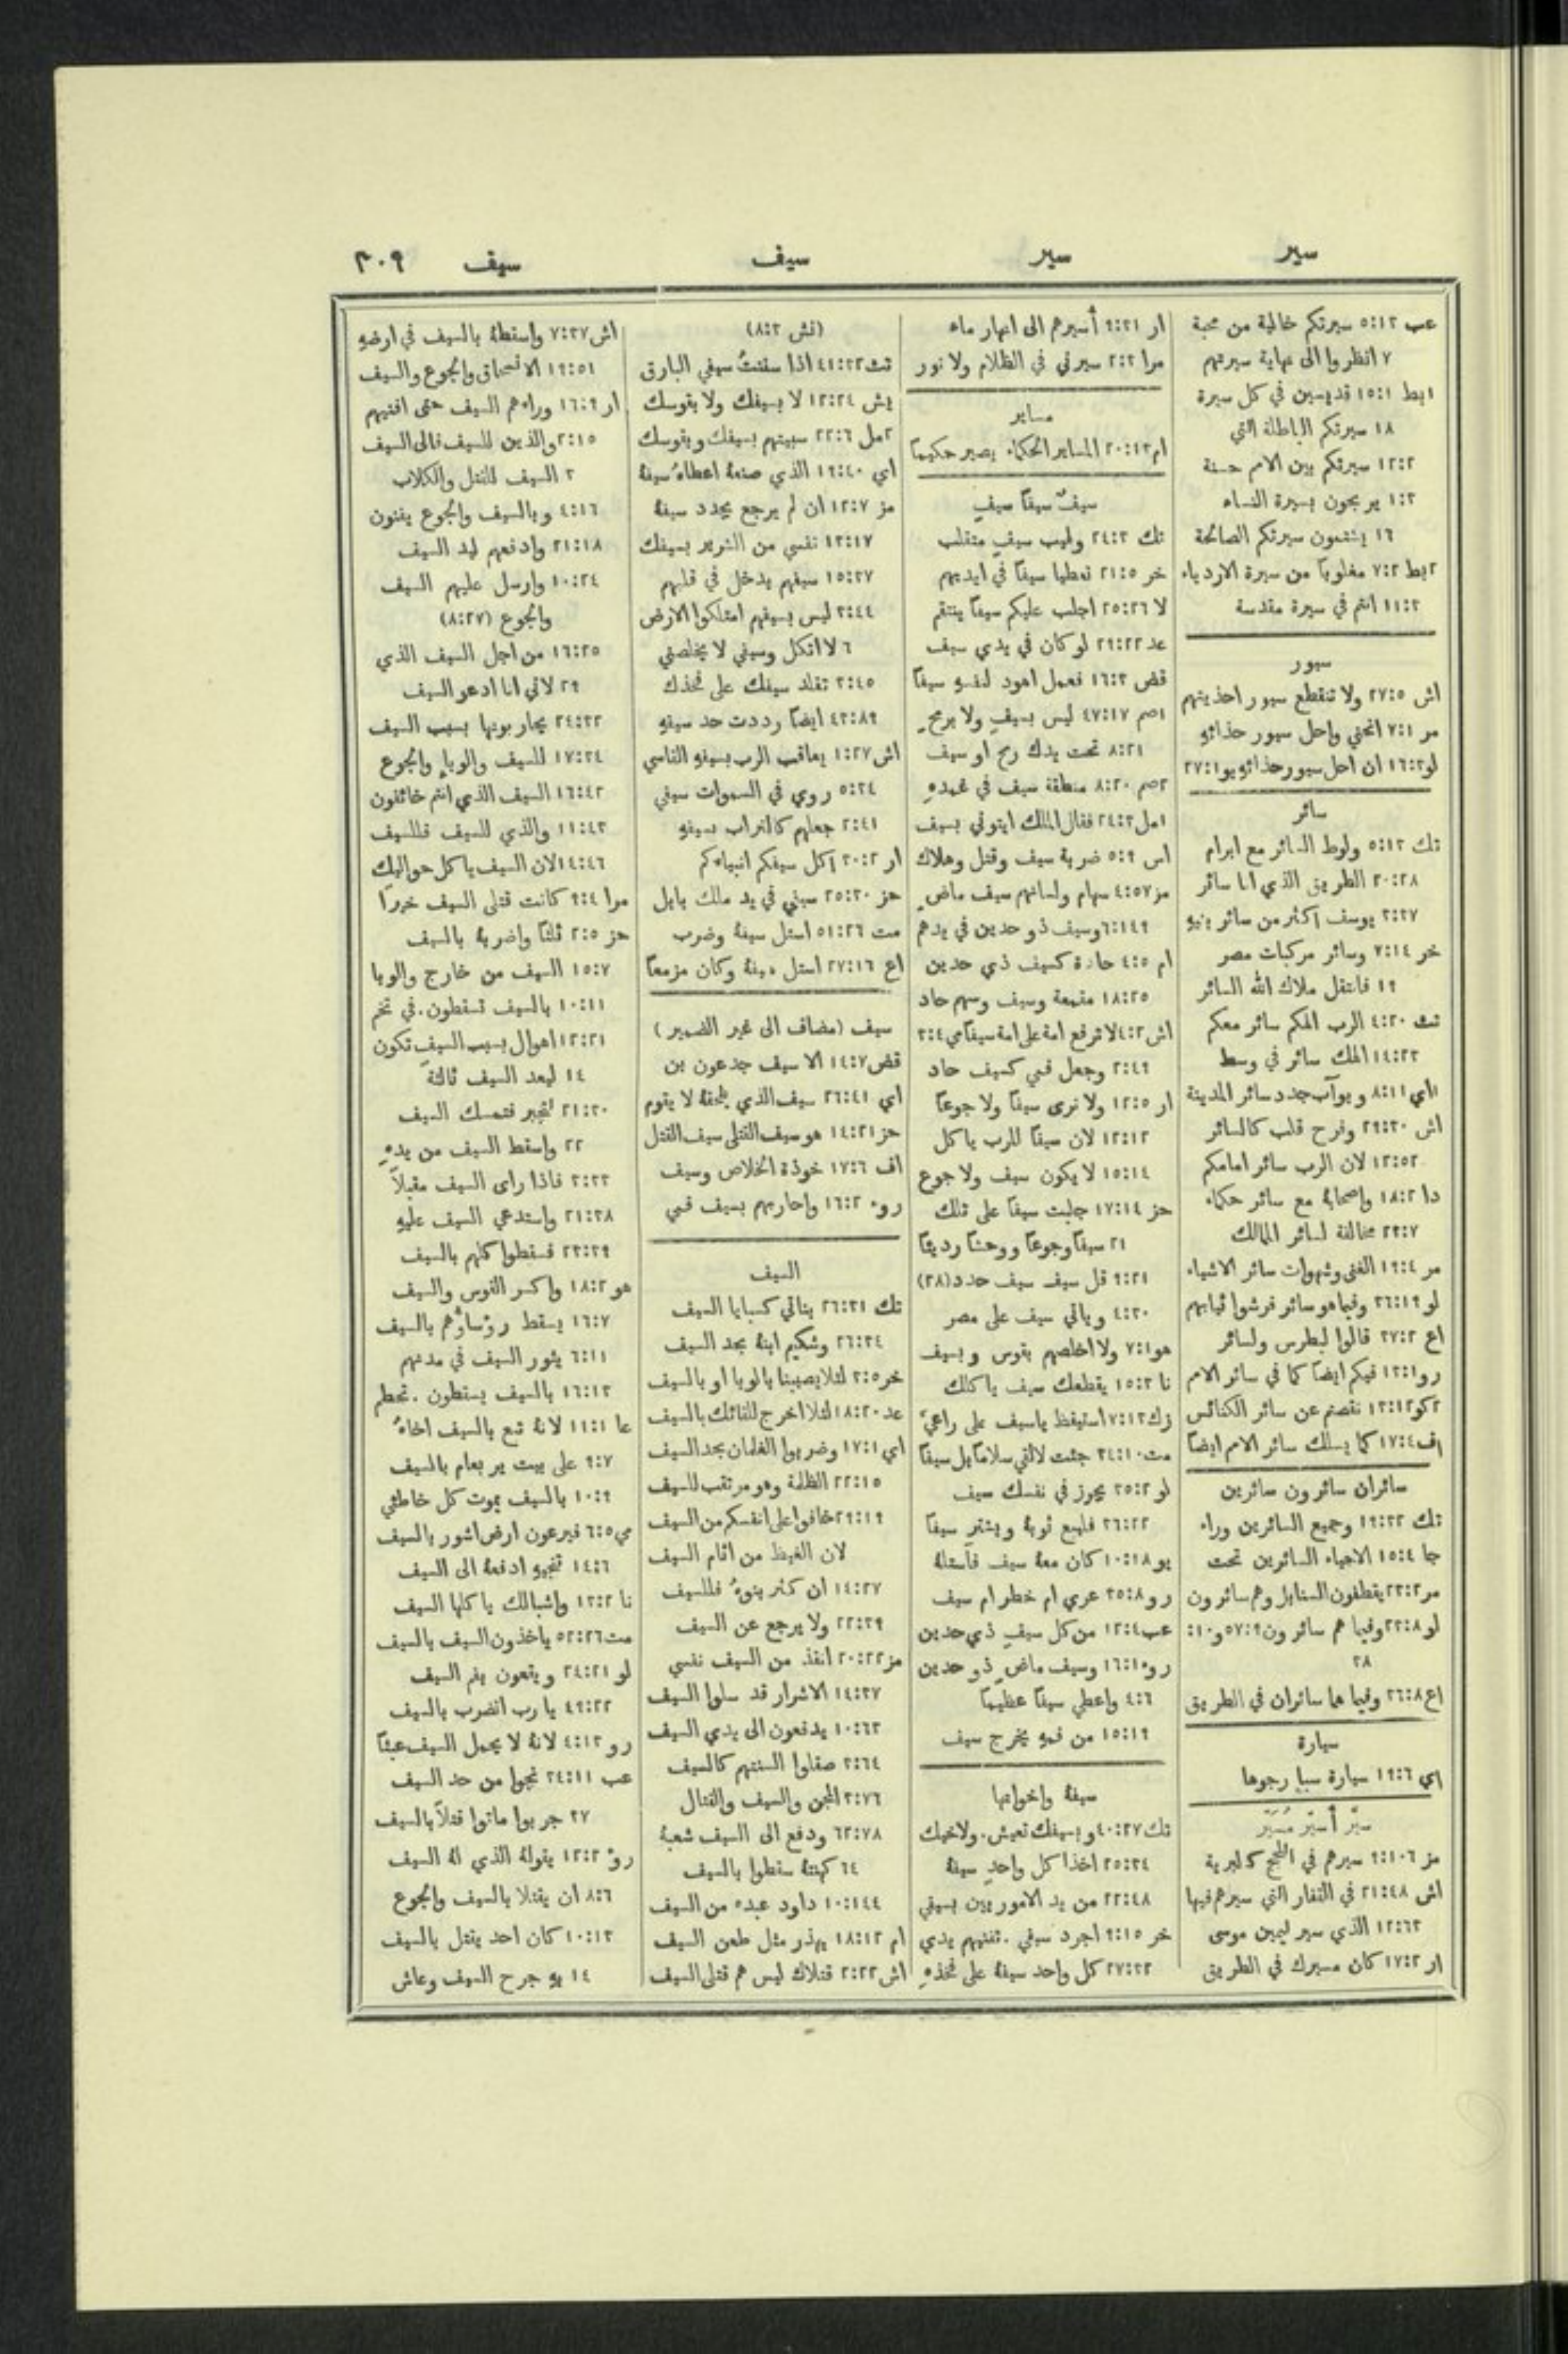 سير
سير
سيف
سيف
٣٠٩
عب ٥:١٣ سيرتكم خالية من محبة
٧ انظروا الى نهاية سيرتهم
١بط ١٥:١ قديسين في كل سيرة
١٨ سيرتكم الباطلة التي
١٢:٢ سيرتكم بين الامم حسنة
١:٣ يربحون بسيرة النساء
١٦ يشتمون سيرتكم الصالحة
٢بط ٧:٢ مغلوبًا من سيرة الاردياء
١١:٣ انتم في سيرة مقدسة
سيور
اش ٢٧:٥ ولا تنقطع سيور احذيتهم
مر ٧:١ انحني واحل سيور حذائهِ
لو ١٦:٣ ان احل سيور حذائهِ يو ٢٧:١
سائر
تك ٥:١٣ ولوط السائر مع ابرام
٢٠:٢٨ الطريق الذي انا سائر
٣:٣٧ يوسف اكثر من سائر بنيهِ
خر ٧:١٤ وسائر مركبات مصر
١٩ فانتقل ملاك الله السائر
تث ٤:٢٠ الرب الهكم سائر معكم
١٤:٢٣ الهك سائر في وسط
١اي ٨:١١ ويوآب جدد سائر المدينة
اش ٢٩:٣٠ وفرح قلب كالسائر
١٢:٥٢ لان الرب سائر امامكم
دا ١٨:٢ واصحابهُ مع سائر حكماء
٢٣:٧ مخالفة لسائر الممالك
مر ١٩:٤ الغنى وشهوات سائر الاشياء
لو ٣٦:١٩ وفيما هو سائر فرشوا ثيابهم
اع ٣٧:٢ قالوا لبطرس ولسائر
رو ١٣:١ فيكم ايضًا كما في سائر الامم
٢كو ١٣:١٢ نقصتم عن سائر الكنائس
اف ١٧:٤ كما يسلك سائر الامم ايضًا
سائران سائرون سائرين
تك ١٩:٣٢ وجميع السائرين وراء
جا ١٥:٤ الاحياء السائرين تحت
مر ٢٣:٢ يقطفون السنابل وهم سائرون
لو ٢٣:٨ وفيما هم سائرون ٥٧:٩ و١٠:
٣٨
اع ٣٦:٨ وفيما هما سائران في الطريق
سيارة
اي ١٩:٦ سيارة سبإ رجوها
سيَّر أُسيّر مُسيَّر
مز ٩:١٠٦ سيرهم في اللجج كالبرية
اش ٢١:٤٨ في القفار التي سيرهم فيها
١٢:٦٣ الذي سير ليمين موسى
ار ١٧:٢ كان مسيرك في الطريق
ار ٩:٣١ أُسيرهم الى انهار ماء
مرا ٢:٣ سيرني في الظلام ولا نور
مساير
ام ٢٠:١٣ المساير الحكماء يصير حكيمًا
سيفٌ سيفًا سيفٍ
تك ٢٤:٣ ولهيب سيفٍ متقلب
خر ٢١:٥ تعطيا سيفًا في ايديهم
لا ٢٥:٢٦ اجلب عليكم سيفًا ينتقم
عد ٢٩:٢٢ لو كان في يدي سيف
قض ١٦:٣ فعمل اهود لنفسهِ سيفًا
١صم ٤٧:١٧ ليس بسيفٍ ولا برمحٍ
٨:٢١ تحت يدك رمح او سيف
٢صم ٨:٢٠ منطقة سيف في غمدهِ
١مل ٢٤:٣ فقال الملك ايتوني بسيف
اس ٥:٩ ضربة سيف وقتل وهلاك
مز ٤:٥٧ سهام ولسانهم سيف ماضٍ
٦:١٤٩ وسيف ذو حدين في يدهم
ام ٤:٥ حادة كسيف ذي حدين
١٨:٢٥ مقمعة وسيف وسهم حاد
اش ٤:٢ لا ترفع امة على امة سيفًا مي ٣:٤
٢:٤٩ وجعل فمي كسيف حاد
ار ١٢:٥ ولا نرى سيفًا ولا جوعًا
١٢:١٢ لان سيفًا للرب ياكل
١٥:١٤ لا يكون سيف ولا جوع
حز ١٧:١٤ جلبت سيفًا على تلك
٢١ سيفًا وجوعًا ووحشًا رديئًا
٩:٢١ قل سيف سيف حدد (٢٨)
٤:٣٠ وياتي سيف على مصر
هو ٧:١ ولا اخلصهم بقوس وبسيف
نا ١٥:٣ يقطعك سيف ياكلك
زك ٧:١٣ استيقظ ياسيف على راعيَّ
مت ٣٤:١٠ جئت لالقي سلامًا بل سيفًا
لو ٣٥:٢ يجوز في نفسك سيف
٣٦:٢٢ فليبع ثوبهُ ويشترِ سيفًا
يو ١٠:١٨ كان معهُ سيف فاستلهُ
رو ٣٥:٨ عري ام خطر ام سيف
عب ١٢:٤ من كل سيفٍ ذي حدين
رو ١٦:١ وسيف ماضٍ ذو حدين
٤:٦ واعطي سيفًا عظيمًا
١٥:١٩ من فمهِ يخرج سيف
سيفهُ واخواتها
تك ٤٠:٢٧ وبسيفك تعيش. ولاخيك
٢٥:٣٤ اخذا كل واحدٍ سيفهُ
٢٢:٤٨ من يد الاموريين بسيفي
خر ٩:١٥ اجرد سيفي. تفنيهم يدي
٢٧:٣٢ كل واحد سيفهُ على فخذهِ
(نش ٨:٣)
تث ٤١:٣٢ اذا سننتُ سيفي البارق
يش ١٢:٢٤ لا بسيفك ولا بقوسك
٢مل ٢٢:٦ سبيتهم بسيفك وبقوسك
اي ١٩:٤٠ الذي صنعهُ اعطاهُ سيفهُ
مز ١٢:٧ ان لم يرجع يحدد سيفهُ
١٣:١٧ نفسي من الشرير بسيفك
١٥:٣٧ سيفهم يدخل في قلبهم
٣:٤٤ ليس بسيفهم امتلكوا الارض
٦ لا اتكل وسيفي لا يخلصني
٣:٤٥ تقلد سيفك على فخذك
٤٣:٨٩ ايضًا رددت حد سيفهِ
اش ١:٢٧ يعاقب الرب بسيفهِ القاسي
٥:٣٤ روي في السموات سيفي
٢:٤١ جعلهم كالتراب بسيفهِ
ار ٣٠:٢ اكل سيفكم انبياءكم
حز ٢٥:٣٠ سيفي في يد ملك بابل
مت ٥١:٢٦ استل سيفهُ وضرب
اع ٢٧:١٦ استل سيفهُ وكان مزمعًا
سيف (مضاف الى غير الضمير)
قض ١٤:٧ الا سيف جدعون بن
اي ٢٦:٤١ سيف الذي يلحقهُ لا يقوم
حز ١٤:٢١ هو سيف القتلى سيف القتل
اف ١٧:٦ خوذة الخلاص وسيف
رو ١٦:٢ واحاربهم بسيف فمي
السيف
تك ٢٦:٣١ بناتي كسبايا السيف
٢٦:٣٤ وشكيم ابنهُ بحد السيف
خر ٣:٥ لئلا يصيبنا بالوبا او بالسيف
عد ١٨:٢٠ لئلا اخرج للقائك بالسيف
اي ١٧:١ وضربوا الغلمان بحد السيف
٢٢:١٥ الظلمة وهو مرتقب للسيف
٢٩:١٩ خافوا على انفسكم من السيف
لان الغيظ من اثام السيف
١٤:٢٧ ان كثر بنوهُ فللسيف
٢٢:٣٩ ولا يرجع عن السيف
مز ٢٠:٢٢ انقذ من السيف نفسي
١٤:٣٧ الاشرار قد سلوا السيف
١٠:٦٣ يدفعون الى يدي السيف
٣:٦٤ صقلوا السنتهم كالسيف
٣:٧٦ المجن والسيف والقتال
٦٢:٧٨ ودفع الى السيف شعبهُ
٦٤ كهنتهُ سقطوا بالسيف
١٠:١٤٤ داود عبده من السيف
ام ١٨:١٢ يهذر مثل طعن السيف
اش ٢:٢٢ قتلاك ليس هم قتلى السيف
اش ٧:٣٧ واسقطهُ بالسيف في ارضهِ
١٩:٥١ الانسحاق والجوع والسيف
ار ١٦:٩ وراءهم السيف حتى افنيهم
٢:١٥ والذين للسيف فالى السيف
٣ السيف للقتل والكلاب
٤:١٦ وبالسيف والجوع يفنون
٢١:١٨ وادفعهم ليد السيف
١٠:٢٤ وارسل عليهم السيف
والجوع (٨:٢٧)
١٦:٢٥ من اجل السيف الذي
٢٩ لاني انا ادعو السيف
٢٤:٣٢ يحاربونها بسبب السيف
١٧:٣٤ للسيف والوبإ والجوع
١٦:٤٢ السيف الذي انتم خائفون
١١:٤٣ والذي للسيف فللسيف
١٤:٤٦ لان السيف ياكل حواليك
مرا ٩:٤ كانت قتلى السيف خيرًا
حز ٢:٥ ثلثًا واضربهُ بالسيف
١٥:٧ السيف من خارج والوبا
١٠:١١ بالسيف تسقطون. في تخم
١٢:٢١ اهوال بسبب السيف تكون
١٤ ليعد السيف ثالثةً
٢١:٣٠ لتجبر فتمسك السيف
٢٢ واسقط السيف من يدهِ
٣:٣٣ فاذا راى السيف مقبلاً
٢١:٣٨ واستدعي السيف عليهِ
٢٣:٣٩ فسقطوا كلهم بالسيف
هو ١٨:٢ واكسر القوس والسيف
١٦:٧ يسقط رؤساؤهم بالسيف
٦:١١ يثور السيف في مدنهم
١٦:١٣ بالسيف يسقطون. تحطم
عا ١١:١ لانهُ تبع بالسيف اخاهُ
٩:٧ على بيت يربعام بالسيف
١٠:٩ بالسيف يموت كل خاطئي
مي ٦:٥ فيرعون ارض اشور بالسيف
١٤:٦ تنجيهِ ادفعهُ الى السيف
نا ١٣:٢ واشبالك ياكلها السيف
مت ٥٢:٢٦ ياخذون السيف بالسيف
لو ٢٤:٢١ ويقعون بفم السيف
٤٩:٢٢ يا رب انضرب بالسيف
رو ٤:١٣ لانهُ لا يحمل السيف عبثًا
عب ٣٤:١١ نجوا من حد السيف
٣٧ جربوا ماتوا قتلاً بالسيف
رؤ ١٢:٢ يقولهُ الذي لهُ السيف
٨:٦ ان يقتلا بالسيف والجوع
١٠:١٣ كان احد يقتل بالسيف
١٤ بهِ جرح السيف وعاش